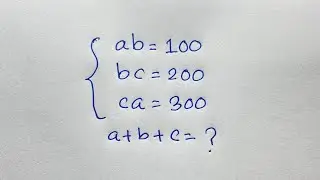 ab = 100
bc = 200
ca = 300
a+b+c = ?